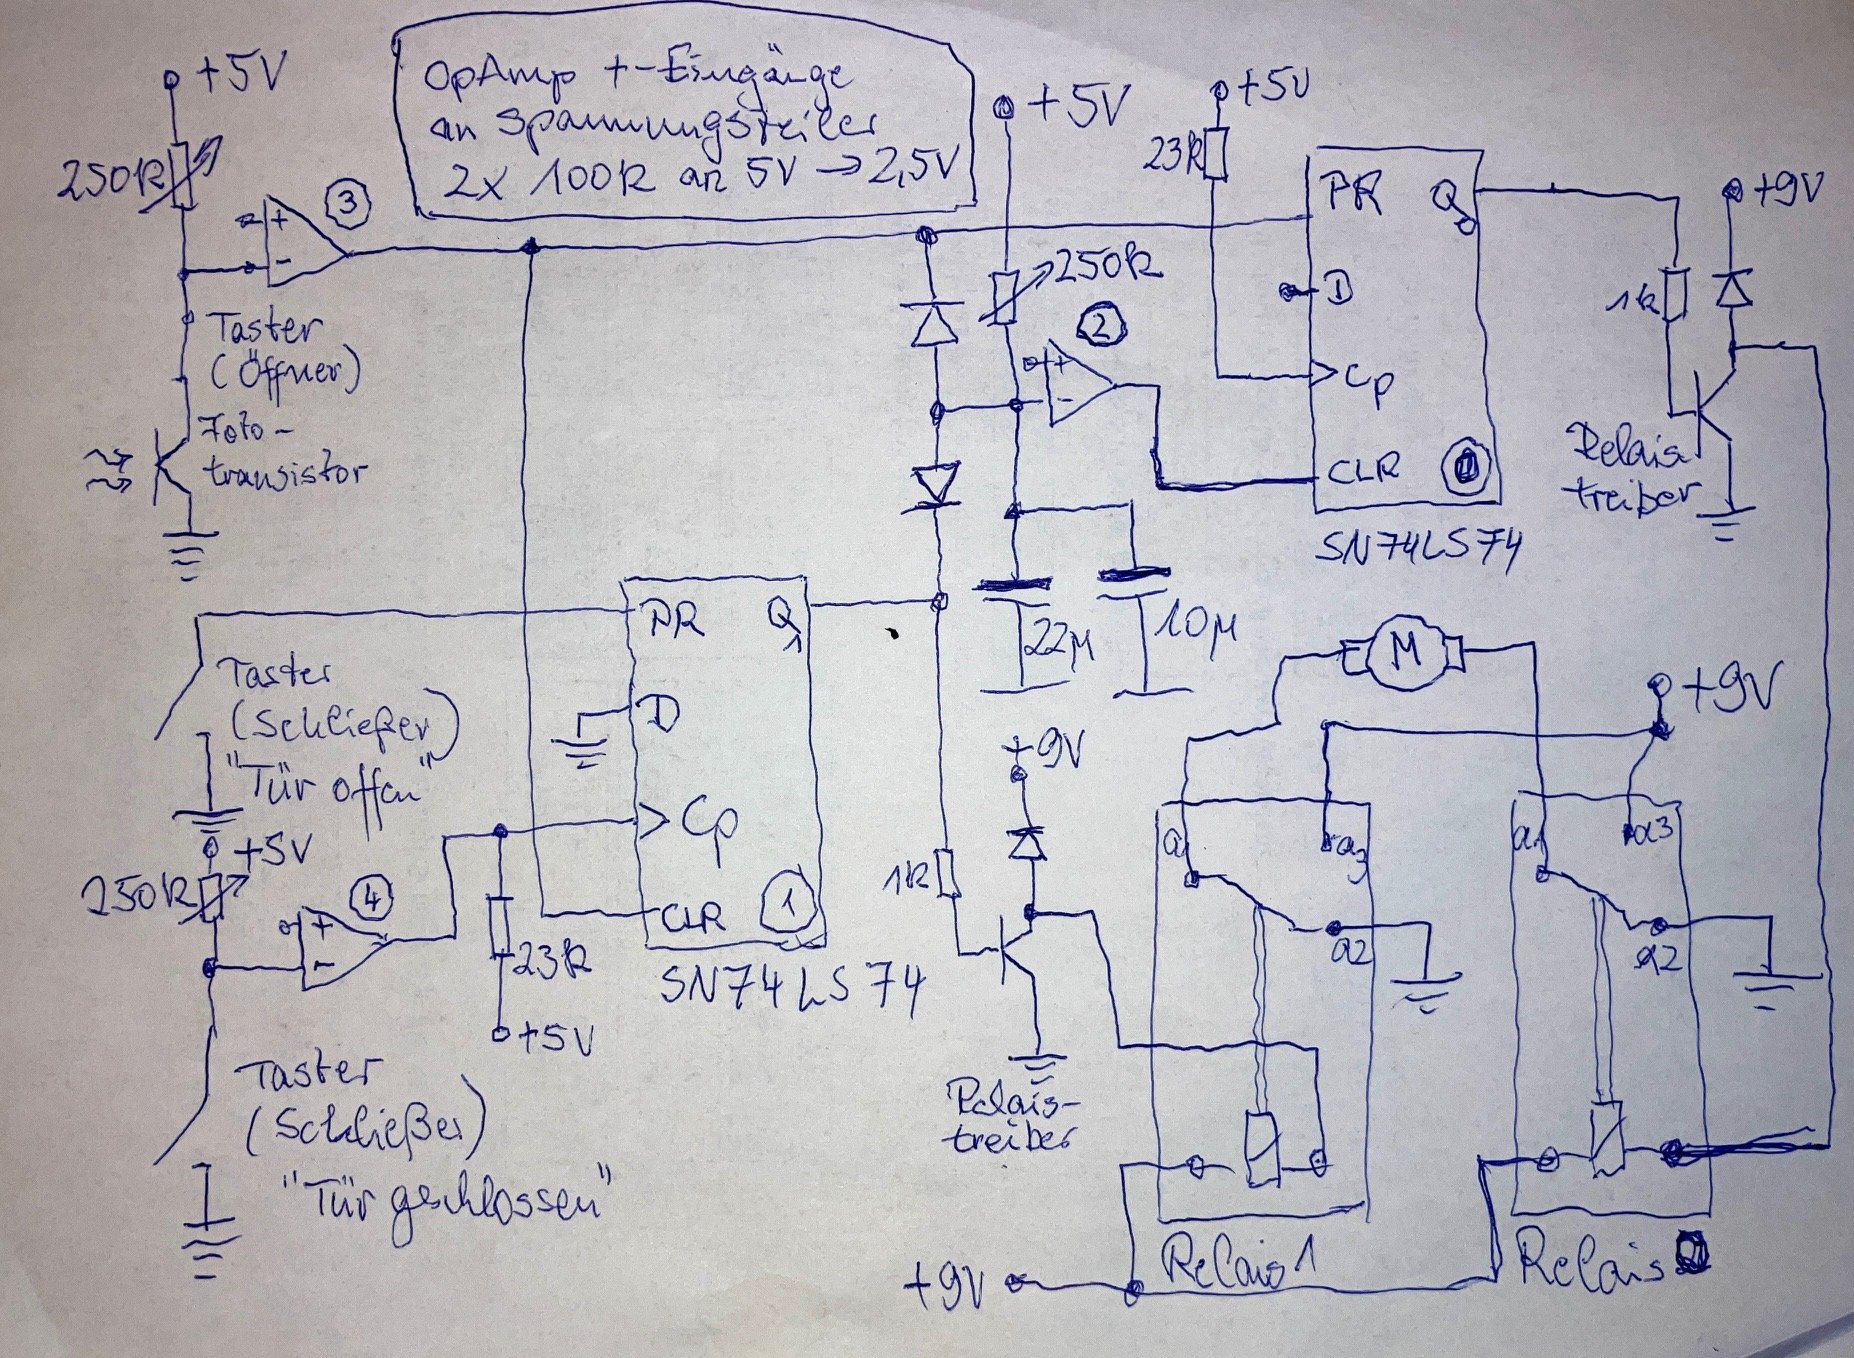 +5V
OpAmp +-Eingänge
an Spannungsteiler
2x 100k an 5V → 2,5V
+5V
+5V
+9V
250k
3
+
-
23k
PR Q0
250k
2
+
-
D
1k
Taster
(Öffner)
Cp
Foto-
transistor
CLR 0
Relais
treiber
SN74LS74
PR Q1
22µ
10µ
M
Taster
(Schließer)
"Tür offen"
D
+9V
+9V
Cp
+5V
250k
4
+
-
a1
a3
a1
a3
1k
CLR 1
23k
a2
a2
SN74LS74
+5V
Taster
(Schließer)
"Tür geschlossen"
Relais-
treiber
Relais 1
Relais 0
+9V